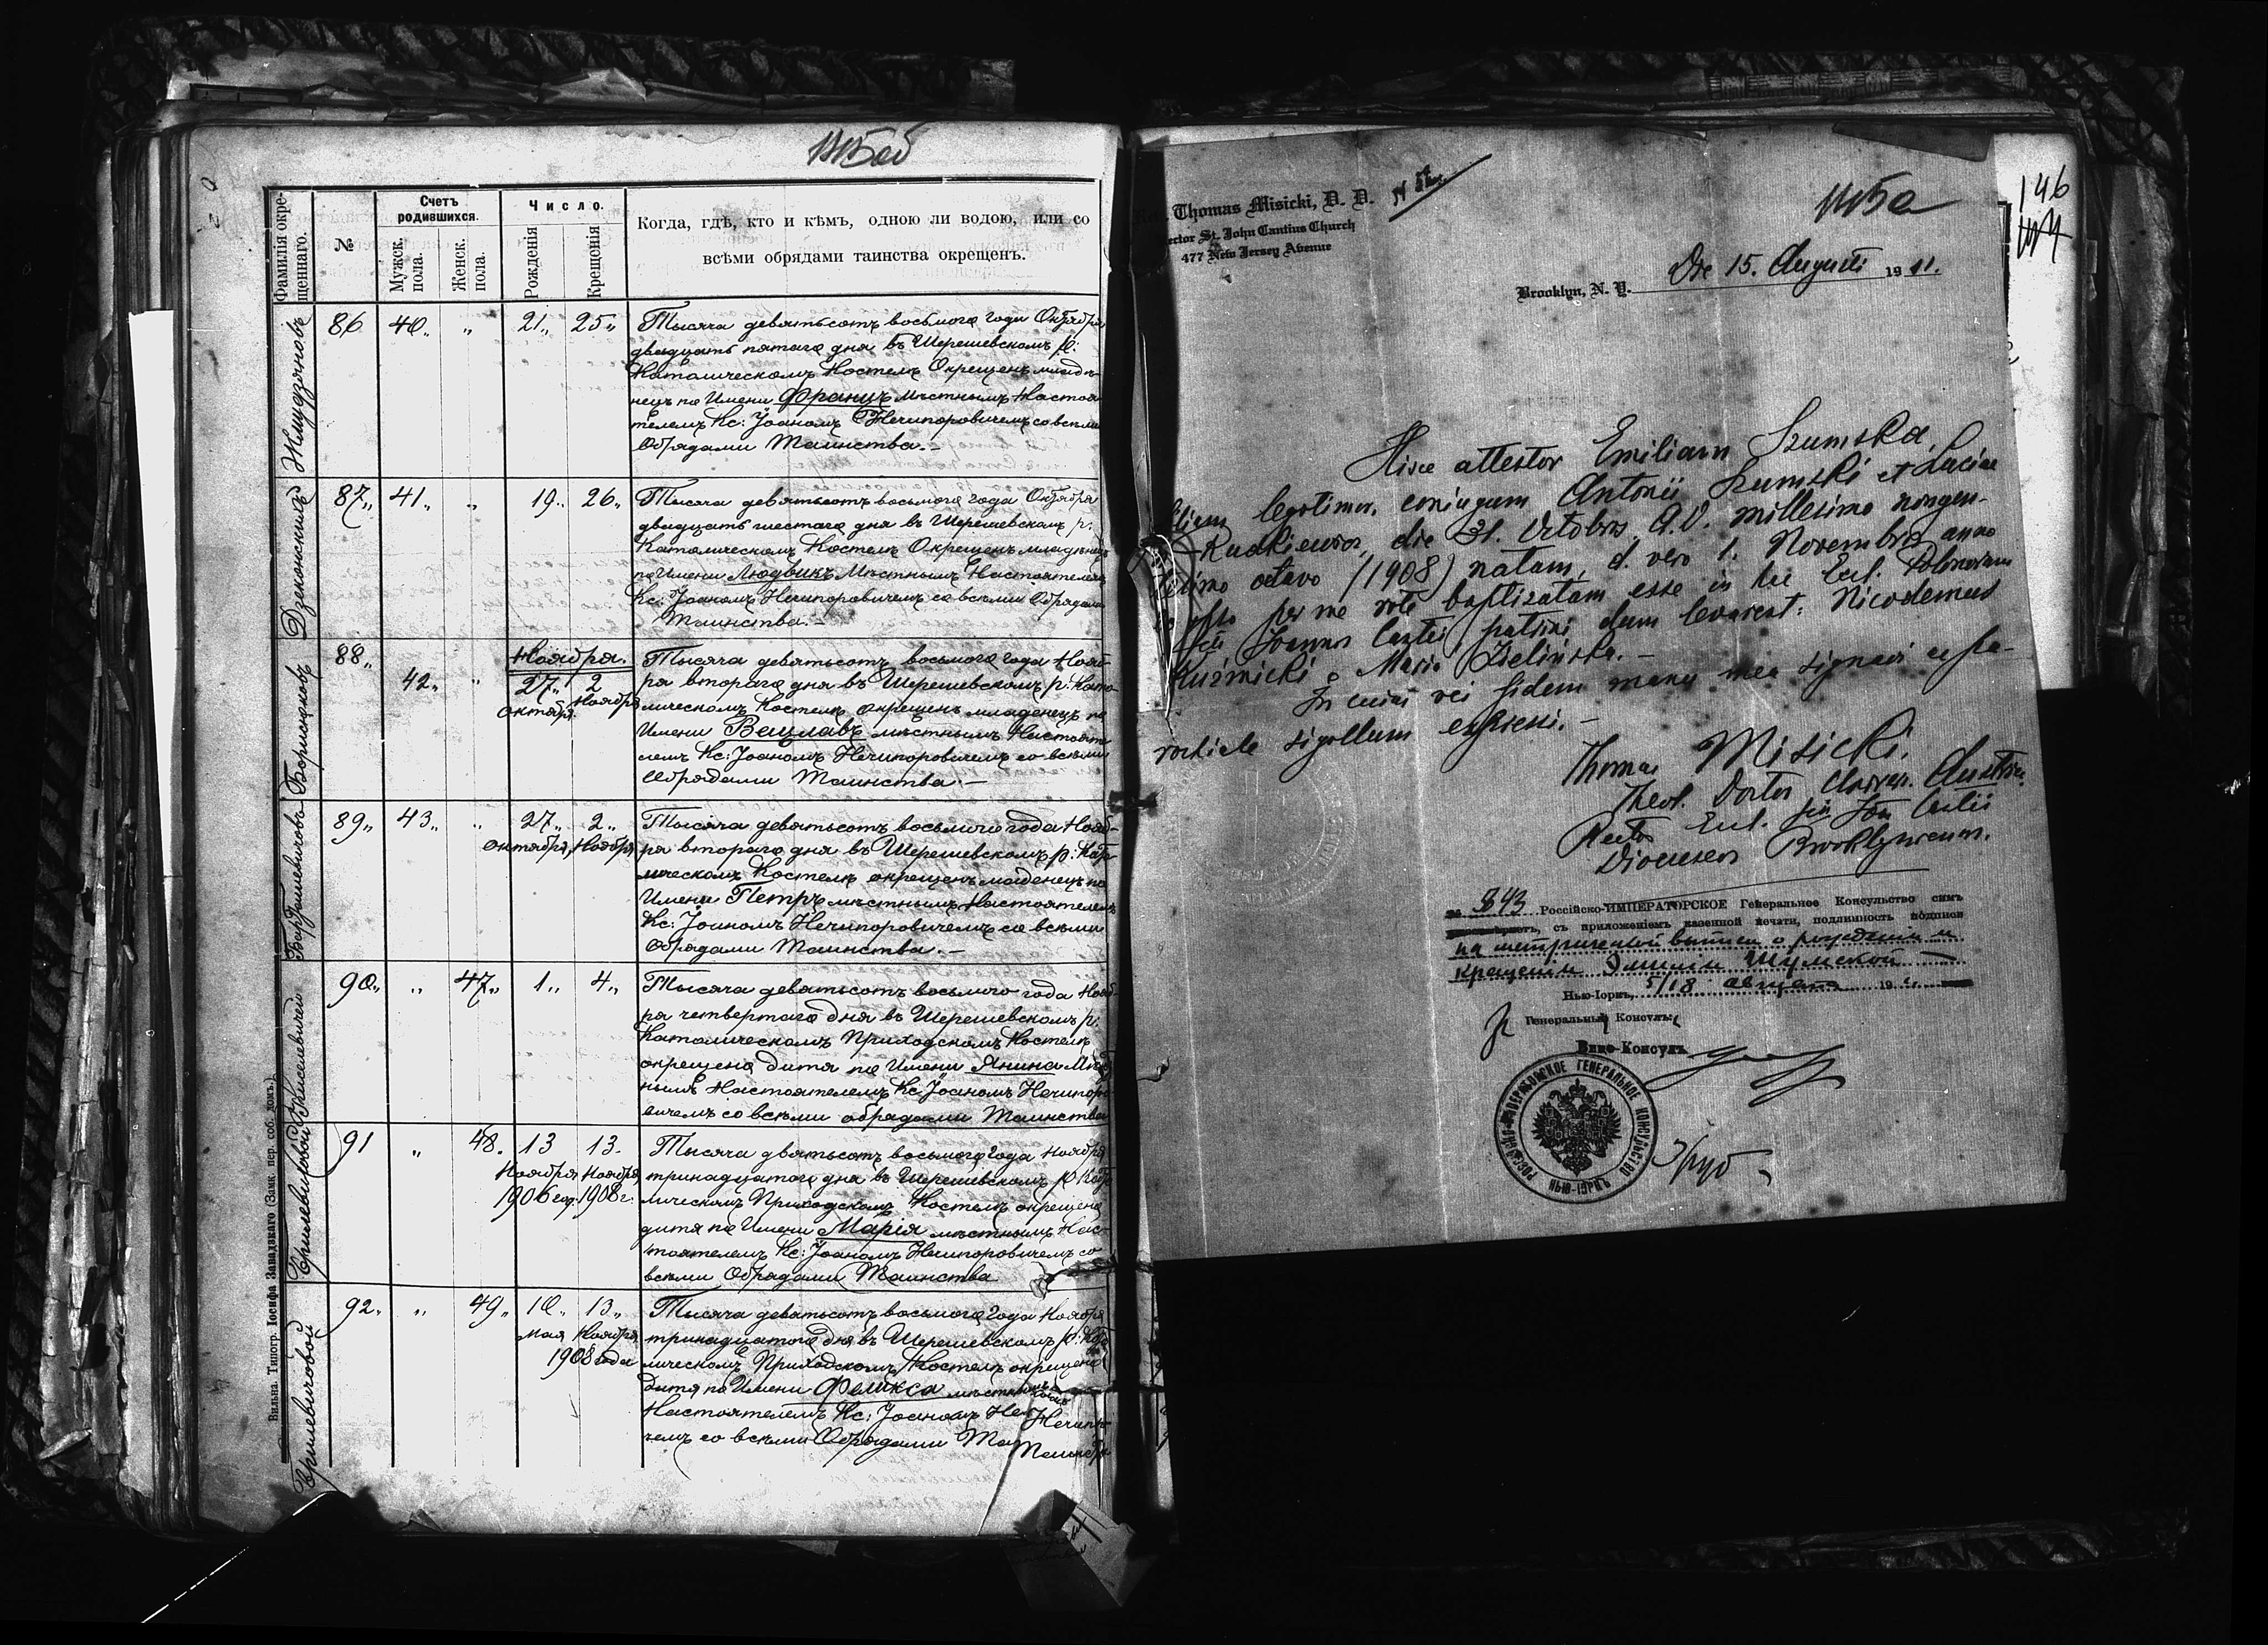 Фамилія окре-
щеннаго.
№
Счетъ
родившихся.
Мужск.
пола.
Женск.
пола.
Число.
Рожденія
Крещенія
Когда, гдѣ, кто и кѣмъ, одною ли водою, или со
всѣми обрядами таинства окрещенъ.
Жмудзяновъ
86 40 „ 21 „ 25 „
Тысяча девятьсотъ восьмого года Октября
двадцать пятаго дня въ Шерешевскомъ р:
Католическомъ Костелѣ Окрещенъ младе-
нецъ по Имени Францъ мѣстнымъ Настоя
телемъ Кс: Іоаномъ Нечипоровичемъ со всѣми
Обрядами Таинства. –
Дзеконскихъ
87 „ 41 „ „ 19 „ 26 „
Тысяча девятьсотъ восьмого года Октября
двадцать шестаго дня въ Шерешевскомъ р.
Католическомъ Костелѣ Окрещенъ младенецъ
по Имени Людвикъ Мѣстнымъ Настоятелемъ
Кс: Іоаномъ Нечипоровичемъ со всѣми Обрядами
Таинства. –
88 „ 42 „ „
Ноября.
27 „ 2
октября. Ноября
Тысяча девятьсотъ восьмого года Нояб-
ря второго дня въ Шерешевскомъ р: Като
лическомъ Костелѣ окрещенъ младенецъ по
Имени Вацлавъ мѣстнымъ Настояте
лемъ Кс: Іоаномъ Нечипоровичемъ со всѣми
Обрядами Таинства. –
89 „ 43 „ „ 27 „ 2 „
октября, Ноября
Тысяча девятьсотъ восьмого года Нояб-
ря второго дня въ Шерешевскомъ р: Като
лическомъ Костелѣ окрещенъ младенецъ по
Имени Петръ мѣстнымъ Настоятелемъ
Кс: Іоаномъ Нечипоровичемъ со всѣми
Обрядами Таинства. –
Киселевичей
90 „ „ 47 „ 1 „ 4 „
Тысяча девятьсотъ восьмого года Нояб-
ря четвертаго дня въ Шерешевскомъ р:
Католическомъ Приходскомъ Костелѣ
окрещено дитя по Имени Янина Мѣст
нымъ Настоятелемъ Кс: Іоаномъ Нечипоро
вичемъ со всѣми обрядами Таинства
91 „ 48 „ 13 13
Ноября Ноября
1906 год. 1908 г.
Тысяча девятьсотъ восьмого года Ноября
тринадцатого дня въ Шерешевскомъ р. Като
лическомъ Приходскомъ Костелѣ окрещено
дитя по Имени Марія мѣстнымъ Нас-
тоятелемъ Кс: Іоаномъ Нечипоровичемъ со
всѣми Обрядами Таинства
92 „ „ 49 „ 10 „ 13 „
мая Ноября
1908 года
Тысяча девятьсотъ восьмого года Ноября
тринадцатого дня въ Шерешевскомъ р: Като
лическомъ Приходскомъ Костелѣ окрещено
дитя по Имени Феликса мѣстнымъ
Настоятелемъ Кс: Іоаномъ Нечипо
чемъ со всѣми Обрядами Та
Вильна. Типогр. Іосифа Завадзкаго (Замк. пер. соб. домъ.)
146
Thomas Misicki, D. D.
ector St. John Cantius Church
477 New Jersey Avenue
Brooklyn, N. Y. Die 15. Augusti 1911.
Hisce attestor Emiliam Szumska,
filiam legitimor. coniugum Antonii Szumski et Luciae
Rudkiewicz, die 21. Octobris A.D. millesimo nongen-
tesimo octavo (1908) natam, d. vero 1. Novembris anno
eodem per me rite baptizatam esse in hac Eccl. Polonorum
Sti Joannis Cantii, patrini dum levarent: Nicodemus
Kuźmicki & Maria Zielińska. –
In cuius rei fidem manu mea signavi et pa-
rochiale sigillum expressi. –
Thomas Misicki.
Theol. Doctor Univer. Austria.
Rector Eccl. Sti Joa. Cantii
Dioceseos Brooklyniensis.
№ 343 Россійско-ИМПЕРАТОРСКОЕ Генеральное Консульство симъ
съ приложеніемъ казенной печати, подлинность подписи
на метрической выписи о рожденіи и
крещеніи Эмиліи Шумской
Нью-Іоркъ, 5/18 августа 19
Генеральный Консулъ:
Вице-Консулъ
РОССІЙСКО-ИМПЕРАТОРСКОЕ ГЕНЕРАЛЬНОЕ КОНСУЛЬСТВО
НЬЮ-ІОРКЪ